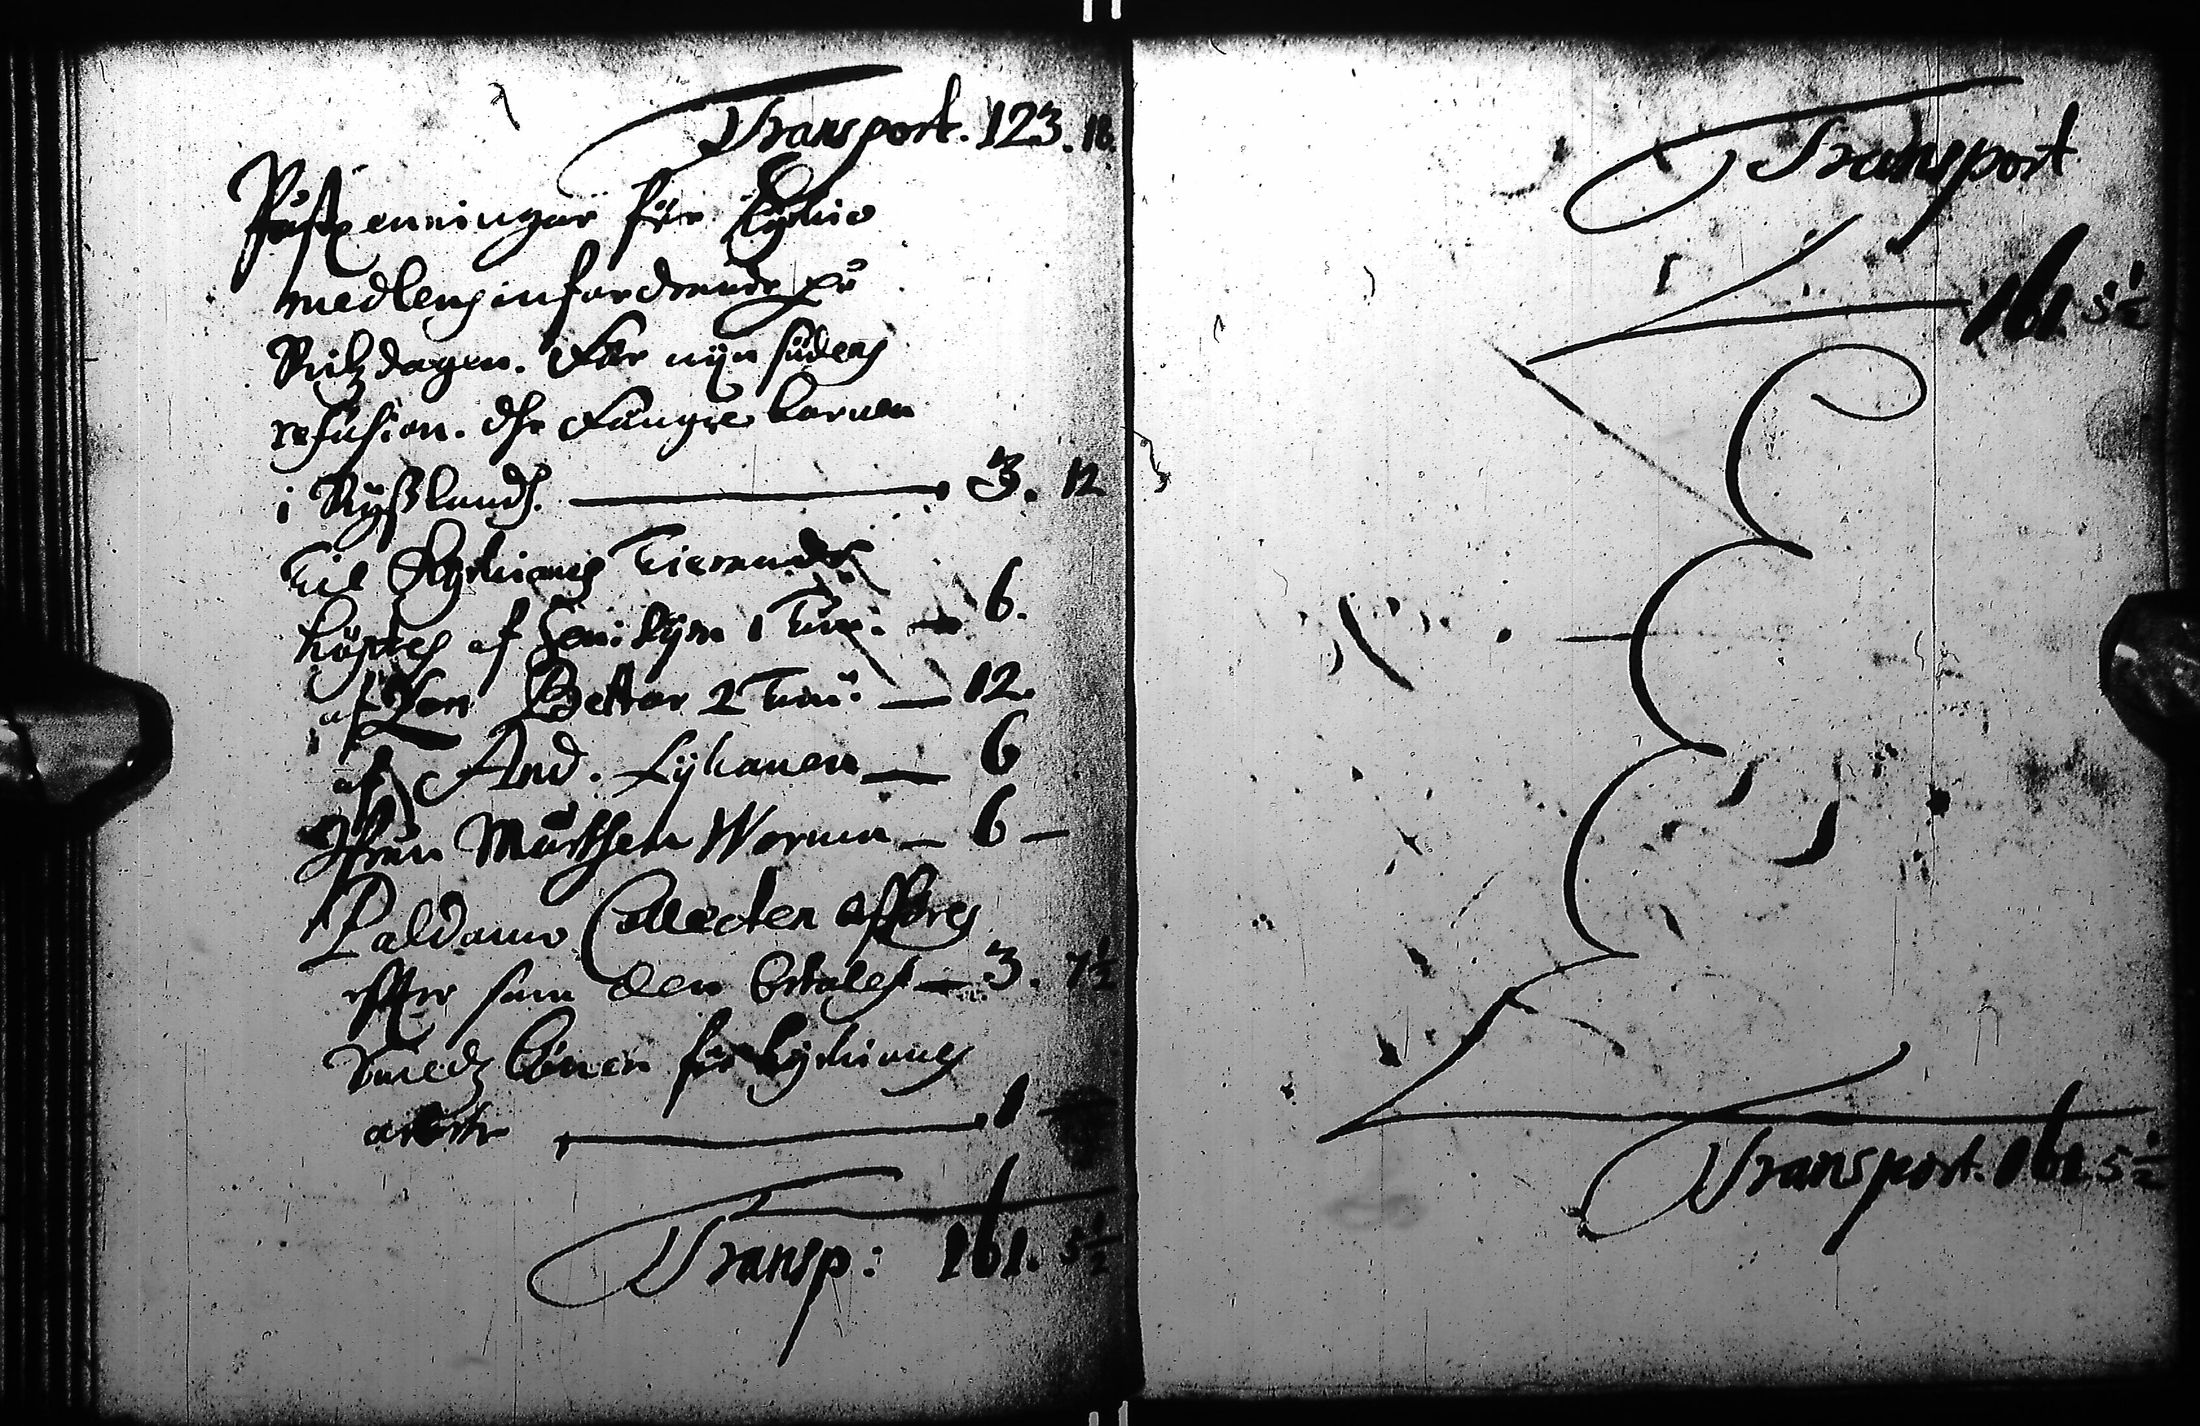 Transport. 123. 18.
Påstpenningar för Kyrkio
medlens infordrande på
Rikzdagen. För nyn
refusion. dhe Fångne barnen
i Rysslandh. 3. 12
Til Kyrkians Tierande
köptes af 1 Tun: 6.
af Petter 2 Tun: 12.
af And. Lykanen 6
Hustru Worma 6
Paldamo Collecten afföres
effter som den betales 3. 7½
Smedz lönen för kyrkians
arbete 1
Transp: 161. 5½
Transport
161. 5½
Transport. 161 5½